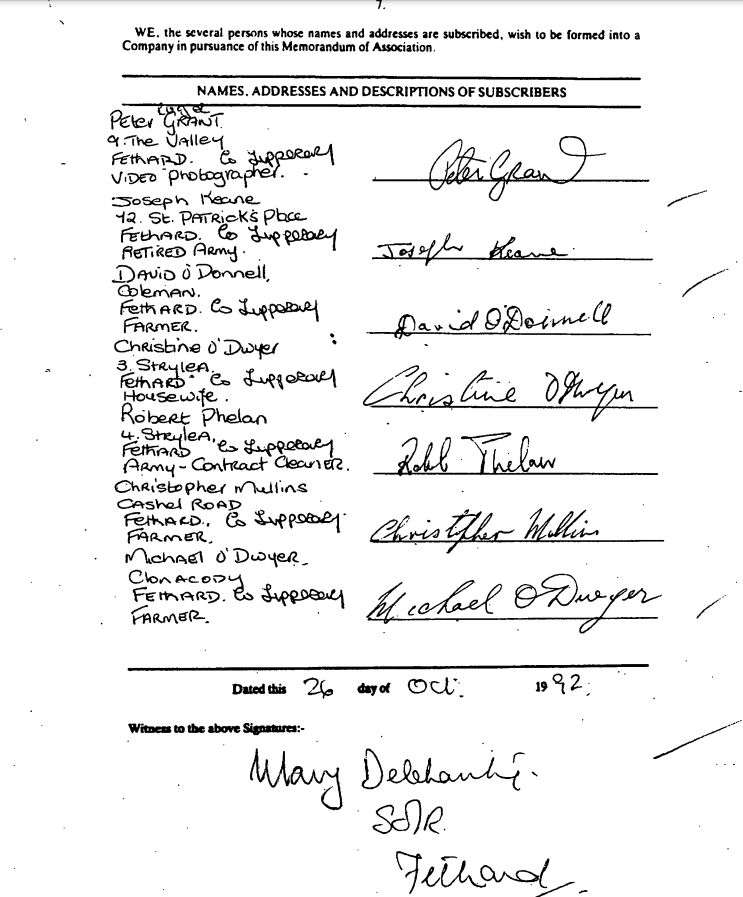 7.
WE, the several persons whose names and addresses are subscribed, wish to be formed into a
Company in pursuance of this Memorandum of Association.
NAMES, ADDRESSES AND DESCRIPTIONS OF SUBSCRIBERS
Peter GRANT
9. The Valley
FETHARD. Co Tipperary
VIDEO Photographer.
Peter Grant
Joseph Keane
St. PATRICK'S Place
FETHARD. Co Tipperary
RETIRED ARMY.
Joseph Keane
DAVID O'Donnell,
Coleman.
FETHARD. Co Tipperary
FARMER.
David O'Donnell
Christine O'Dwyer
3. Strylea,
Fethard Co Tipperary
Housewife.
Christine O'Dwyer
Robert Phelan
4. Strylea,
FETHARD, Co Tipperary
ARMY - Contract Cleaner.
Robert Phelan
Christopher Mullins
CASHEL ROAD
FETHARD., Co Tipperary.
FARMER.
Christopher Mullins
MICHAEL O'Dwyer
Clonacody
FETHARD. Co Tipperary
FARMER.
Michael O'Dwyer
Dated this 26 day of Oct. 1992.
Witness to the above Signatures:-
Mary Delehanty.
Solr.
Fethard